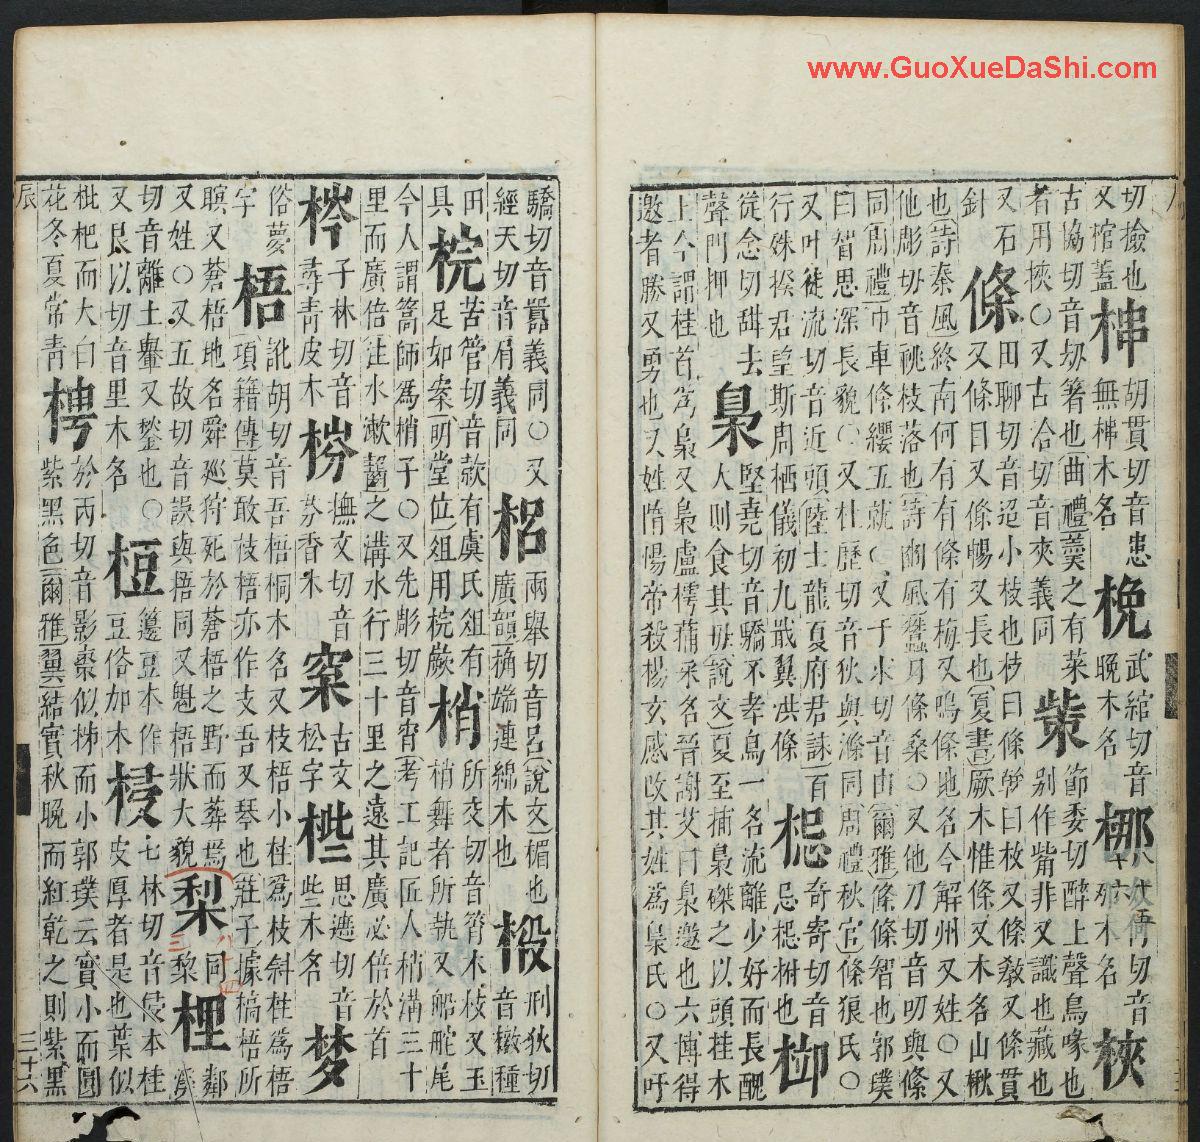 www.GuoXueDaShi.com
切撿也
又棺蓋 梙 胡貫切音患
無梙木名 梚 武綰切音
晚木名 梛
那木名 梜
古協切音刼箸也曲禮羹之有菜
者用挾○又古洽切音夾義同 㭰 節委切醉上聲鳥喙也
别作觜非又識也藏也
又石
針 條 田聊切音迢小枝也枝曰條榦曰枚又條敎又條貫
又條目又條暢又長也夏書厥木惟條又木名山楸
也詩秦風終南何有有條有梅又鳴條地名今解州又姓○又
他彫切音祧枝落也詩豳風蠶月條桑○又他刀切音叨與絛
同周禮巾車條纓五就○又于求切音由爾雅條條智也郭璞
曰智思深長貌○又杜歷切音狄與滌同周禮秋官條狼氏○
又叶徒流切音近頭陸士龍夏府君誄百
行姝揆君皇斯周栖儀初九戢翼洪條 梞 奇寄切音
忌梞柎也 𣐮
從念切甜去
聲門押也 梟 堅堯切音驕不孝鳥一名流離少好而長醜
人則食其母說文夏至捕梟磔之以頭挂木
上今謂挂首爲梟又梟盧樗蒱采名晉謝艾曰梟邀也六博得
邀者勝又勇也又姓隋煬帝殺楊玄感改其姓爲梟氏○又吁
驕切音囂義同○又
經天切音肩義同 梠 兩舉切音呂說文楣也
廣韻桷端連綿木也 椴 刑狄切
音檄種
田
具 梡 苦管切音款有虞氏俎有
足如案明堂位俎用梡嶡 梢 所交切音筲木枝又玉
梢舞者所執又船舵尾
今人謂篙師爲梢子○又先彫切音宵考工記匠人梢溝三十
里而廣倍注水漱齧之溝水行三十里之遠其廣必倍於首
梣 子林切音
尋青皮木 梤 撫文切音
芬香木 㮤 古文
松字 㭰 思遮切音
些木名 梦
俗夢
字 梧 訛胡切音吾梧桐木名又枝梧小柱爲枝斜柱爲梧
項籍傳莫敢枝梧亦作支吾又琴也莊子據槁梧所
瞑又蒼梧地名舜巡狩死於蒼梧之野而葬焉
又姓○又五故切音誤與梧同又魁梧狀大貌 梨 同
棃 梩
切音離土轝又鍫也○
又艮以切音里木名 梪 籩豆本作
豆俗加木 梫 七林切音侵本桂
皮厚者是也葉似
枇杷而大白
花冬夏常青 梬 於丙切音影棗似柹而小郭璞云實小而圓
紫黑色爾雅翼結實秋晚而紅乾之則紫黑
辰
三十六